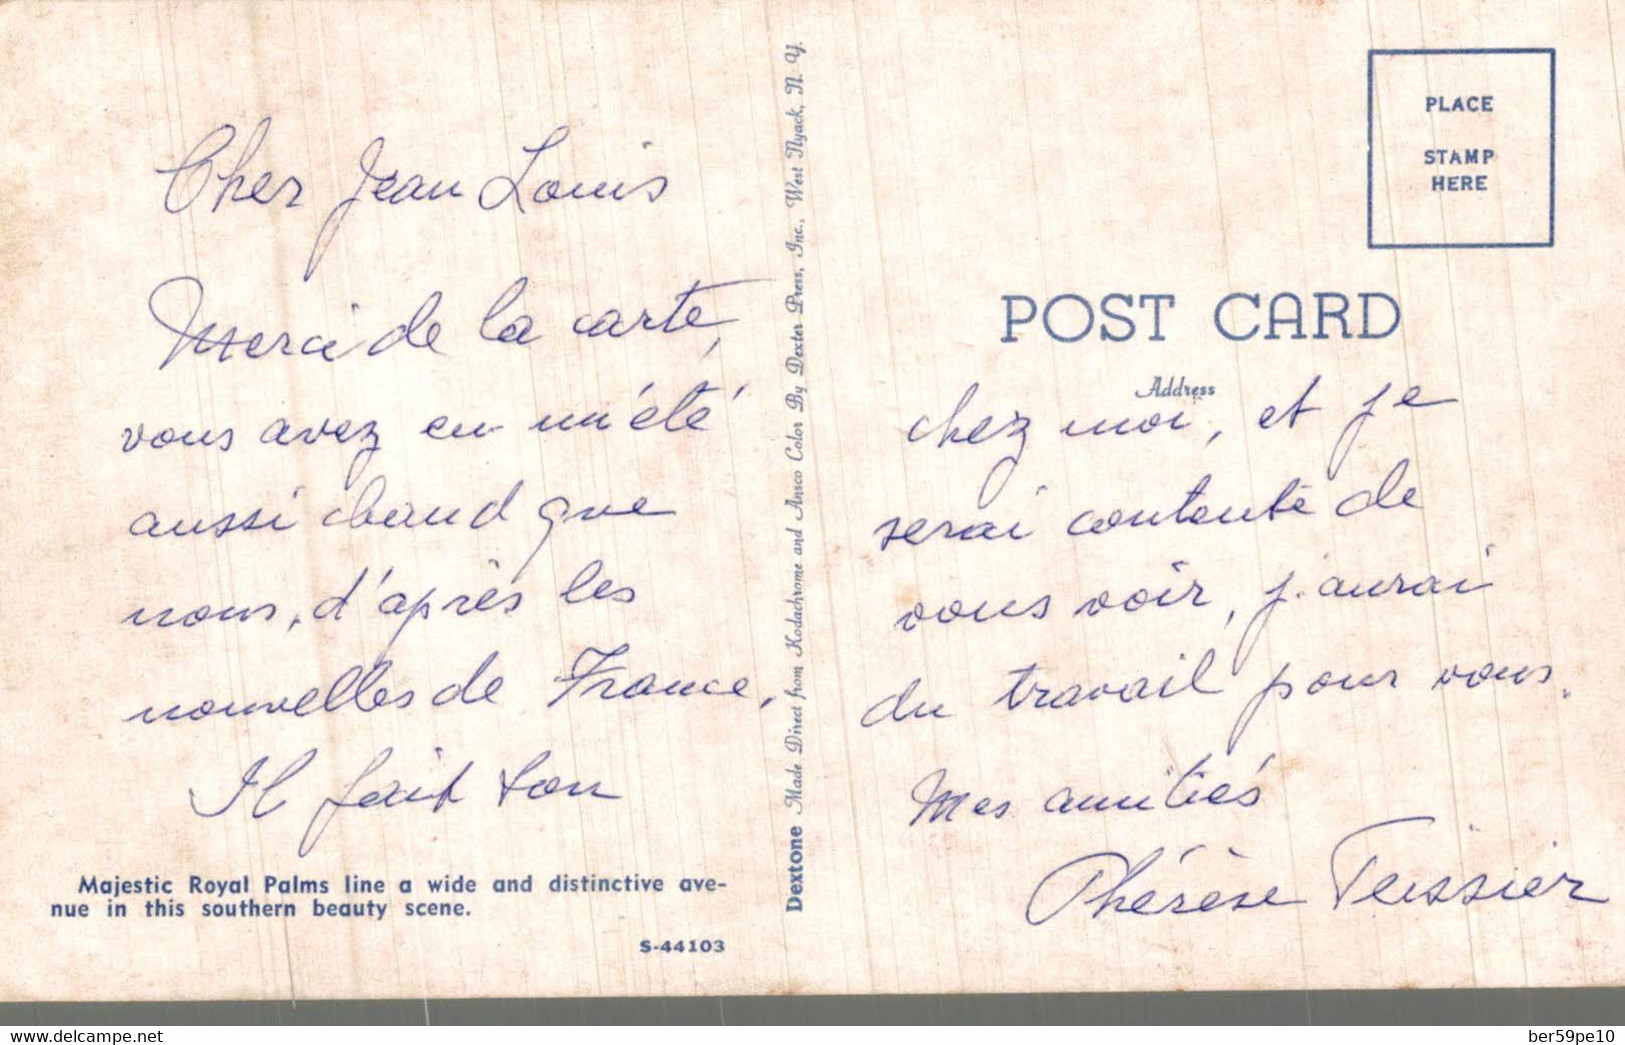 Cher Jean Louis
Merci de la carte,
vous avez eu un été
aussi chaud que
nous, d'après les
nouvelles de France,
Il fait bon
Majestic Royal Palms line a wide and distinctive ave-
nue in this southern beauty scene.
S-44103
Dextone Made Direct from Kodachrome and Ansco Color By Dexter Press, Inc., West Nyack, N. Y.
PLACE
STAMP
HERE
POST CARD
Address
chez moi, et je
serai contente de
vous voir, j'aurai
du travail pour vous.
Mes amitiés
Thérèse Teissier
delcampe.net
ber59pe10